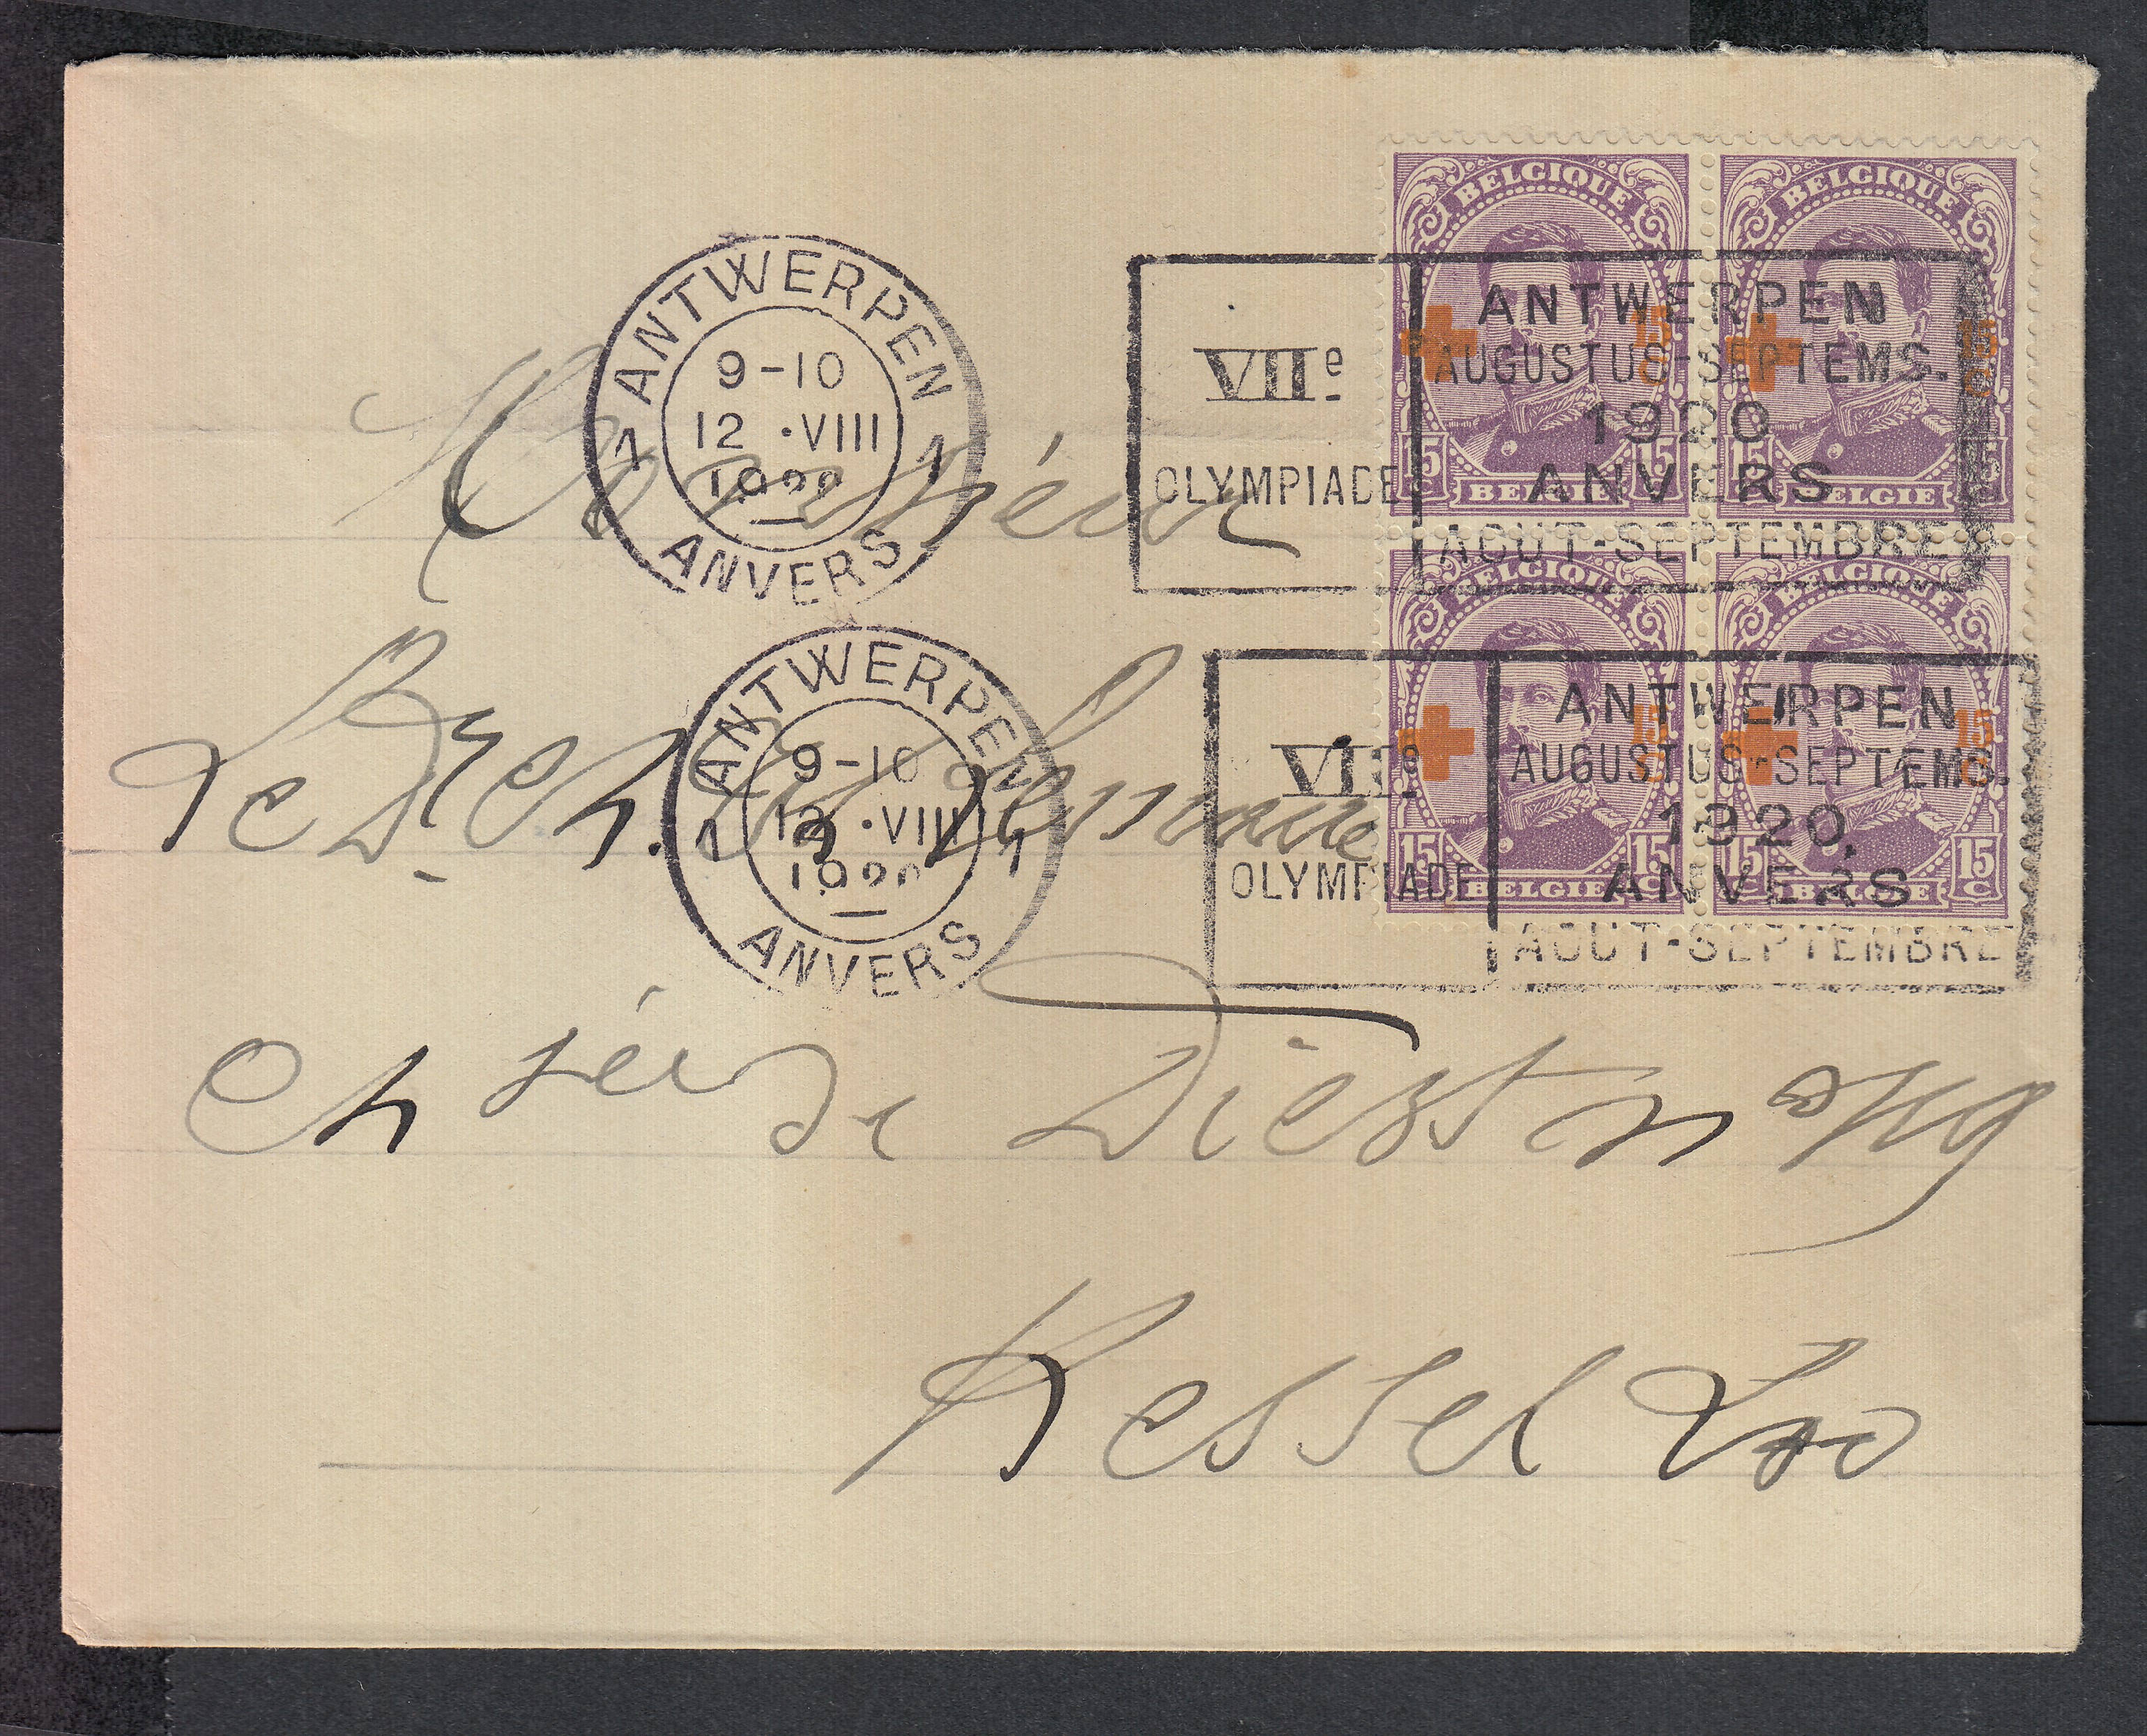 BELGIQUE BELGIQUE
15 C 15 C
15 15 15 15
BELGIE BELGIE
BELGIQUE BELGIQUE
15 C 15 C
15 C 15 C 15 C 15 C
BELGIE BELGIE
1 ANTWERPEN 1
9-10
12 •VIII
1920
ANVERS
VIIe
OLYMPIADE
ANTWERPEN
AUGUSTUS-SEPTEMB.
1920
ANVERS
AOUT-SEPTEMBRE
1 ANTWERPEN 1
9-10
12 •VIII
1920
ANVERS
VIIe
OLYMPIADE
ANTWERPEN
AUGUSTUS-SEPTEMB.
1920
ANVERS
AOUT-SEPTEMBRE
Monsieur
De
Ch de Diest
Kessel Loo